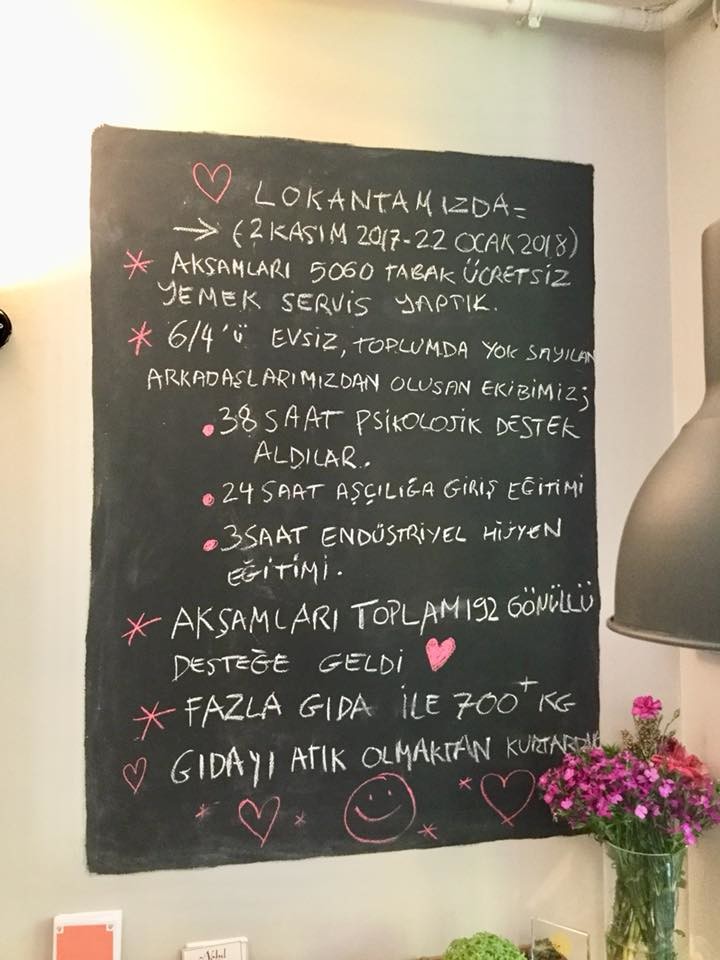 LOKANTAMIZDA=
→ (2 KASIM 2017-22 OCAK 2018)
* AKŞAMLARI 5060 TABAK ÜCRETSİZ
YEMEK SERVİS YAPTIK.
* 6/4'ü EVSİZ, TOPLUMDA YOK SAYILAN
ARKADAŞLARIMIZDAN OLUSAN EKİBİMİZ;
• 38 SAAT PSİKOLOJİK DESTEK
ALDILAR.
• 24 SAAT AŞÇILIĞA GİRİŞ EĞİTİMİ
• 3 SAAT ENDÜSTRİYEL HİJYEN
EĞİTİMİ.
* AKŞAMLARI TOPLAM 192 GÖNÜLLÜ
DESTEĞE GELDİ
* FAZLA GIDA İLE 700+ KG
GIDAYI ATIK OLMAKTAN KURTARDIK